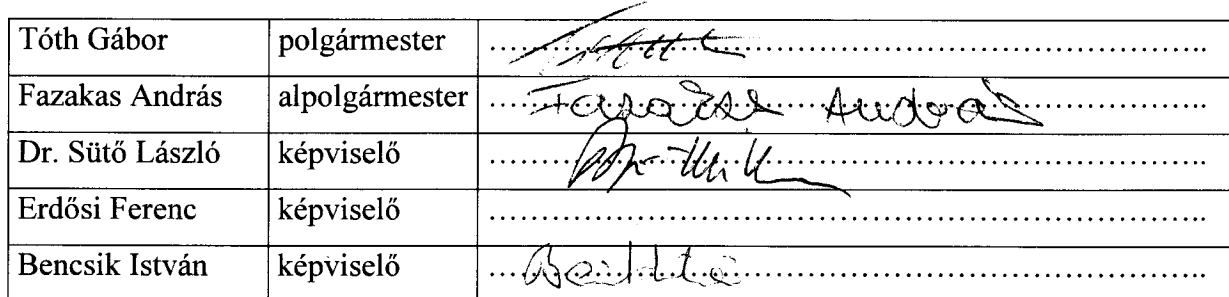 Tóth Gábor polgármester
Fazakas András alpolgármester Fazakas András
Dr. Sütő László képviselő
Erdősi Ferenc képviselő
Bencsik István képviselő